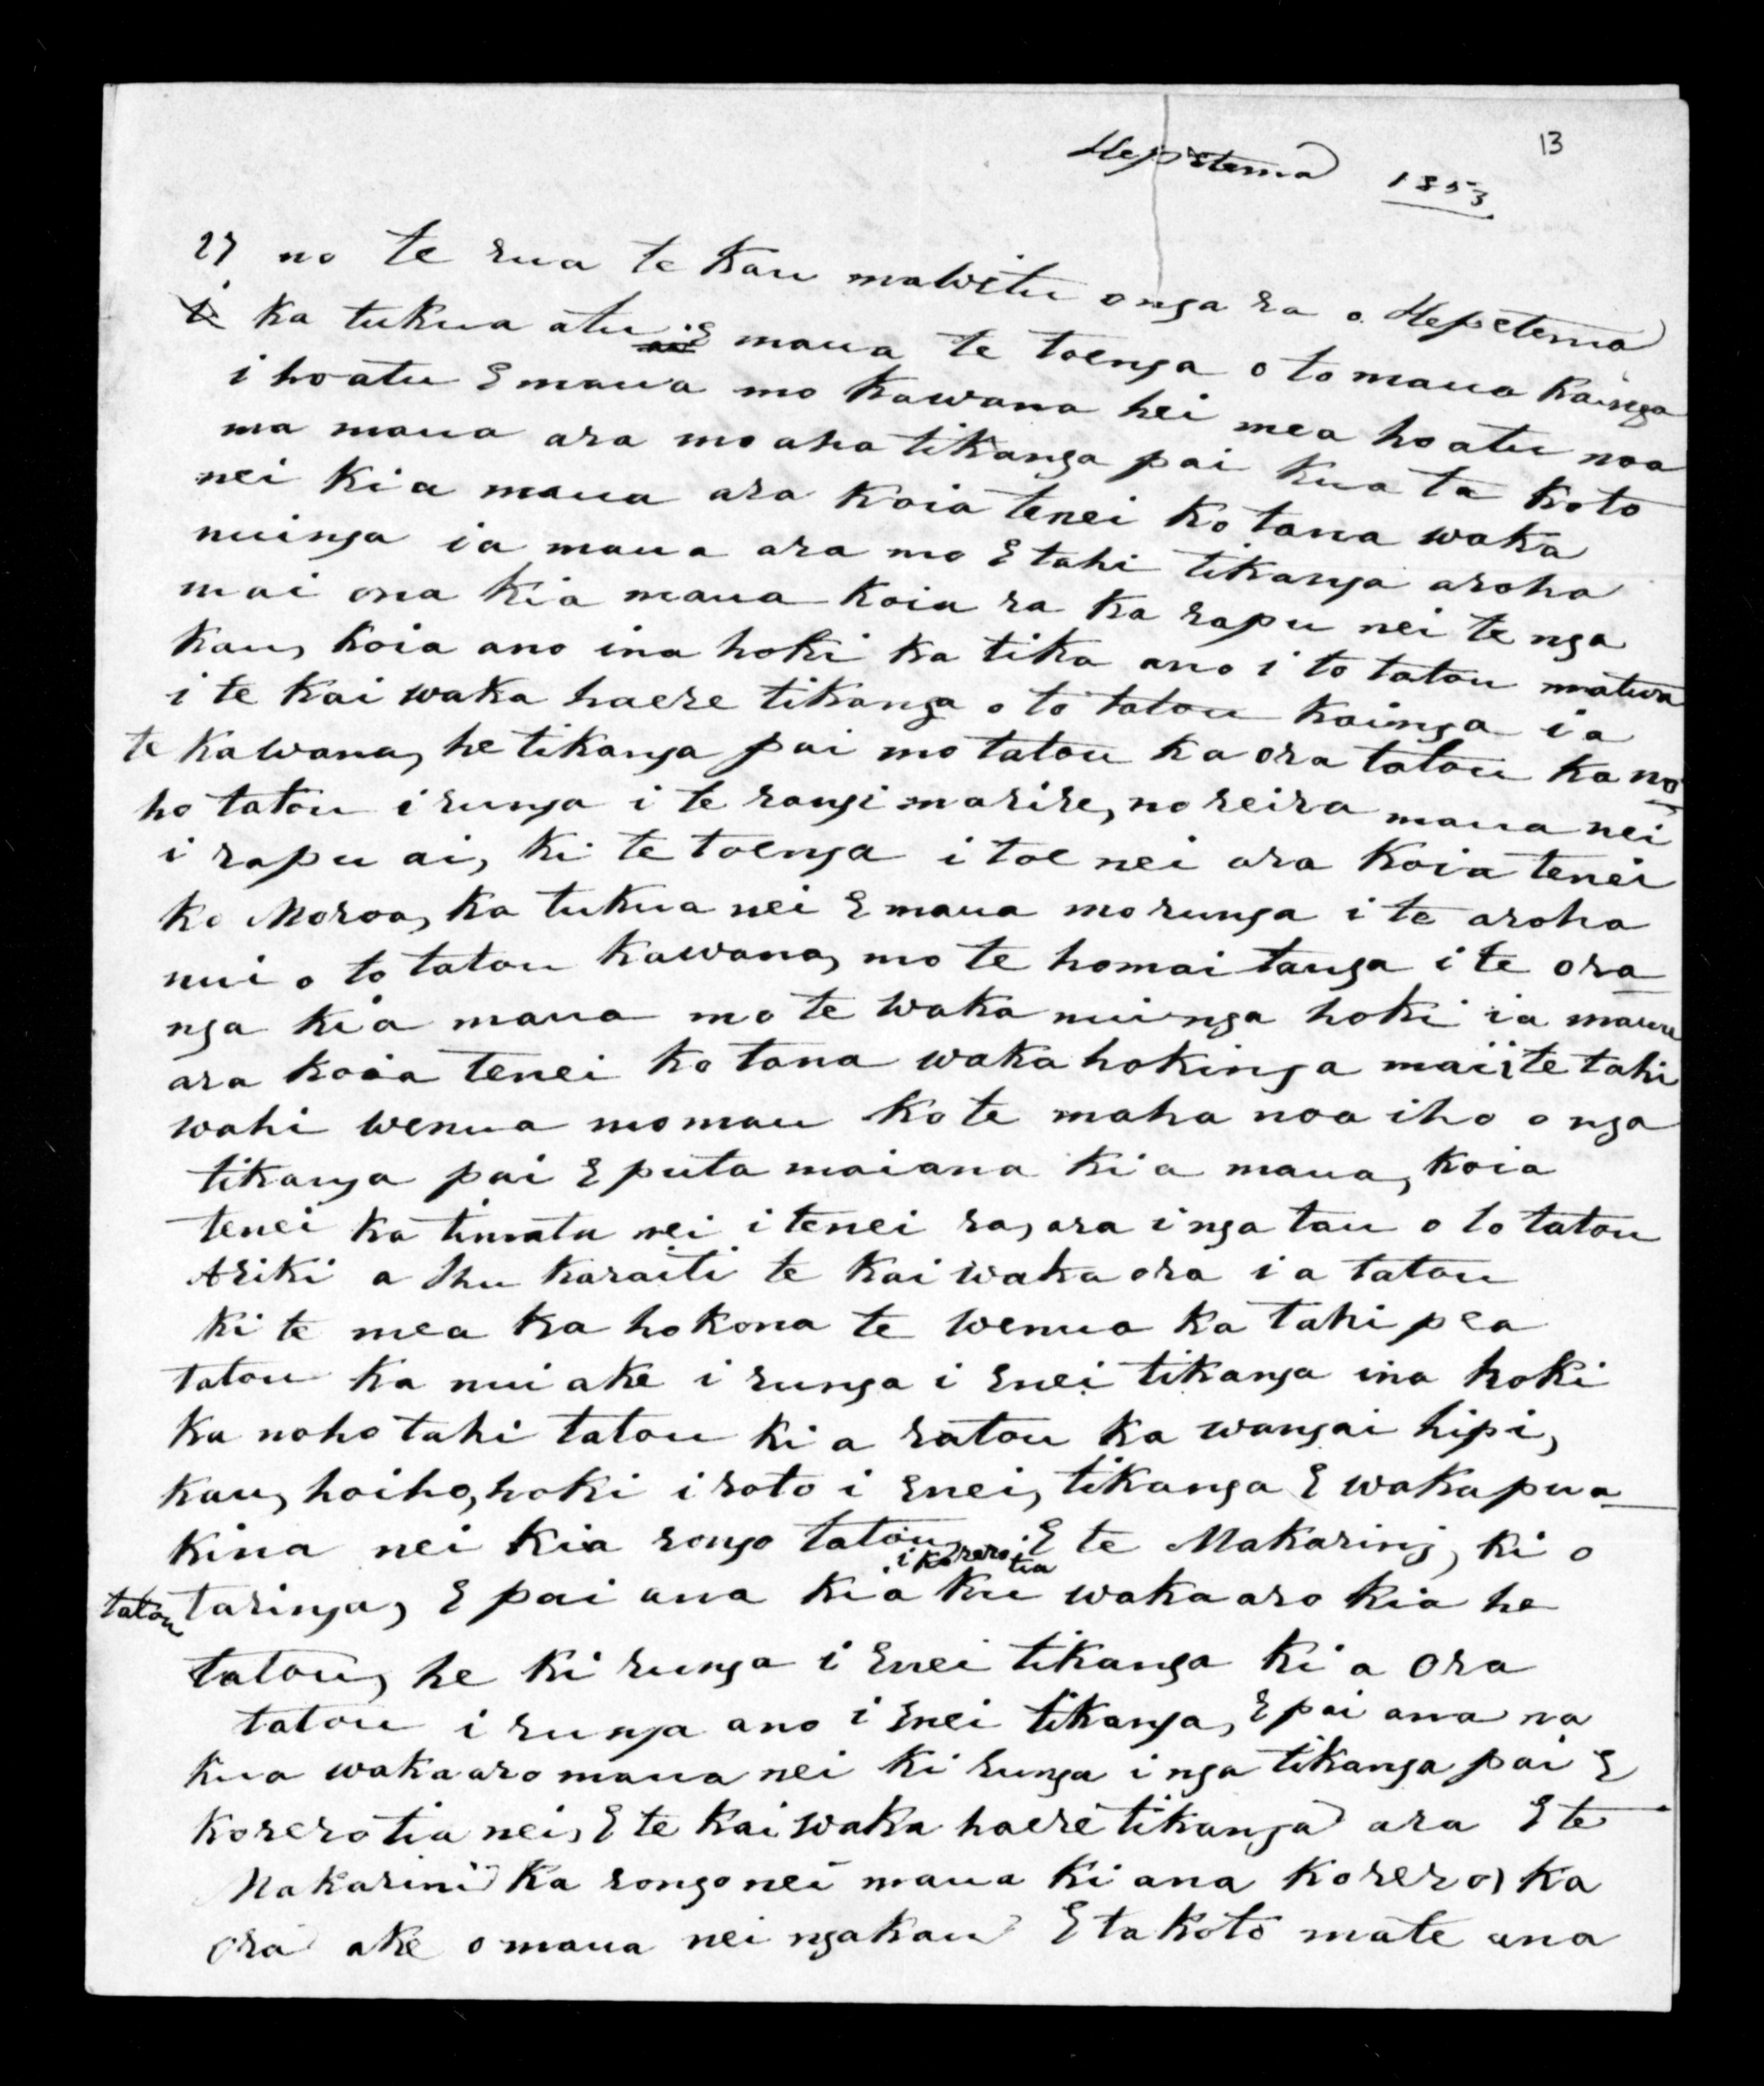 13
Hepetema 1853
27 no te rua te kau mawitu o nga ra o Hepetema
ka tukua atu E maua te toenga o to maua kainga
i hoatu E maua mo Kawana hei mea hoatu noa
ma maua ara mo aha tikanga pai kua ta koto
nei ki a maua ara koia tenei ko tana waka
nuinga ia maua ara mo E tahi tikanga aroha
mai ona kia maua koia ra ka rapu nei te nga
kau, koia ano ina hoki ka tika ano i to tatou matua
i te kai waka haere tikanga o to tatou kainga i a
te Kawana, he tikanga pai mo tatou ka ora tatou ka no
ho tatou i runga i te rangi marire, no reira maua nei
i rapu ai, ki te toenga i toe nei ara koia tenei
ko Moroa, ka tukua nei E maua mo runga i te aroha
nui o to tatou Kawana, mo te homai tanga i te ora
nga kia maua mo te waka nuinga hoki ia maua
ara koia tenei ko tana waka hokinga mai i te tahi
wahi wenua mo mau ko te maha noa iho o nga
tikanga pai E puta mai ana ki a maua, koia
tenei ka timata nei i tenei ra, ara i nga tau o to tatou
Ariki a Ihu karaiti te kai waka ora i a tatou
ki te mea ka hokona te wenua ka tahi pea
tatou ka nui ake i runga i Enei tikanga ina hoki
ka noho tahi tatou ki a ratou ka wangai hipi,
kau, hoiho, hoki i roto i Enei, tikanga E wakapua
kina nei kia rongo tatou, i korero tia E te Makarini, ki o
tatou taringa, E pai ana kia ku waka aro kia he
tatou, he ki runga i Enei tikanga ki a ora
tatou i runga ano i Enei tikanga, E pai ana na
kua waka aro maua nei ki runga i nga tikanga pai E
korerotia nei, E te kai waka haere tikanga ara E te
Makarini ka rongo nei maua ki ana korero, ka
ora ake o maua nei ngakau E ta koto mate ana